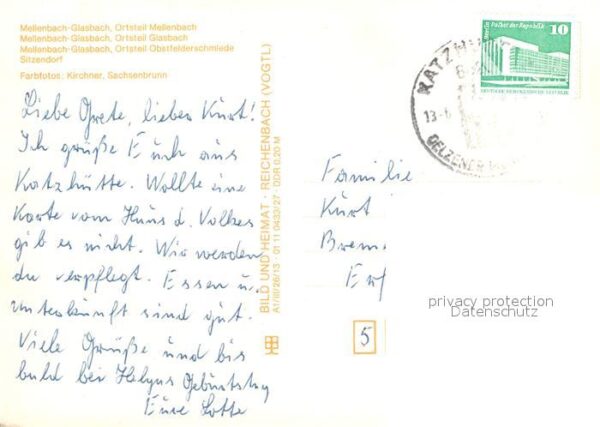 Mellenbach-Glasbach, Ortsteil Mellenbach
Mellenbach-Glasbach, Ortsteil Glasbach
Mellenbach-Glasbach, Ortsteil Obstfelderschmiede
Sitzendorf
Farbfotos: Kirchner, Sachsenbrunn
Liebe Grete, lieber Kurt!
Ich grüße Euch aus
Katzhütte. Wollte eine
Karte vom Haus d. Volkes
gib es nicht. Wir werden
da verpflegt. Essen u.
Unterkunft sind gut.
Viele Grüße und bis
bald bei Helgas Geburtstag
Eure Lotte
BILD UND HEIMAT · REICHENBACH (VOGTL)
A1/III/26/13 · 01 11 0433/27 · DDR 0,20 M
10
KATZHÜTTE
13.6
OELZENER
Familie
Kurt
Brem
Erf
privacy protection
Datenschutz
5